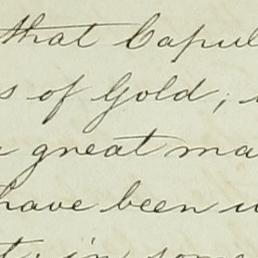 that Capul
s of Gold;
great ma
have been
in some